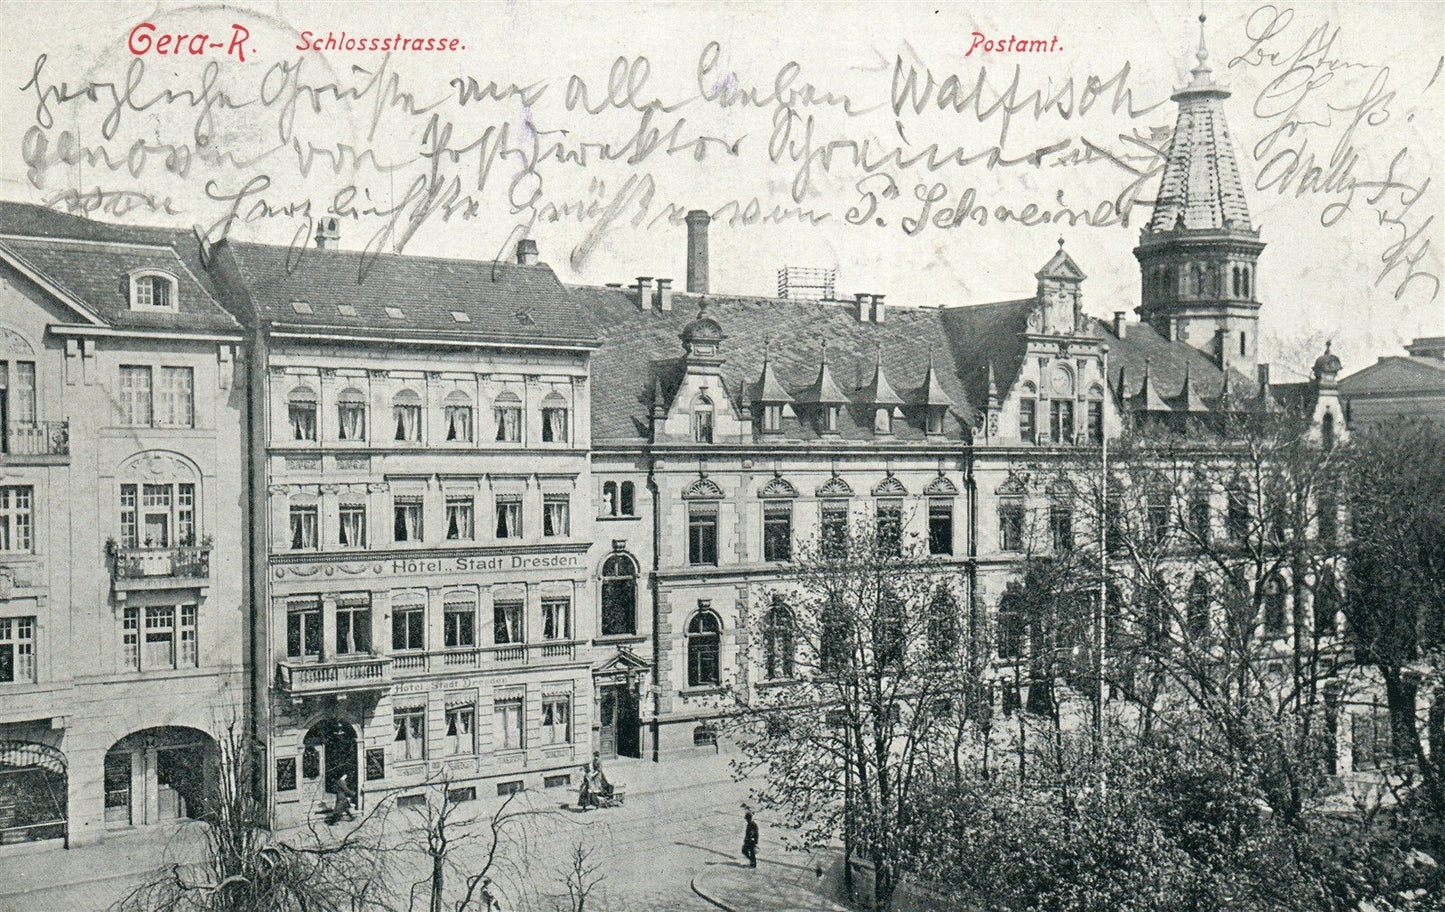 Gera-R. Schlossstrasse.
Postamt.
herzliche Grüße an alle lieben Walfisch
von Postdirektor Schreiner
herzlichste Grüße von P. Schreiner
Besten
Gruß!
Hôtel „Stadt Dresden
Hôtel Stadt Dresden